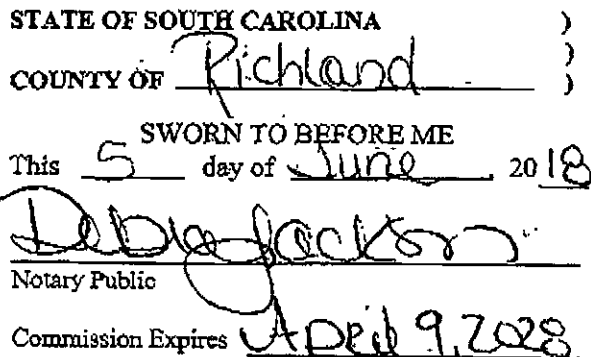 STATE OF SOUTH CAROLINA )
)
COUNTY OF Richland )
SWORN TO BEFORE ME
This 5 day of June 2018
Debra Jackson
Notary Public
Commission Expires April 9, 2028